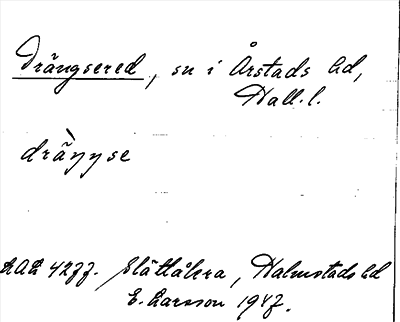 Drängsered, sn i Årstads hd,
Hall. l.
dräŋŋse
LAL 4277. Slättåkra, Halmstads hd
E. Larsson 1947.